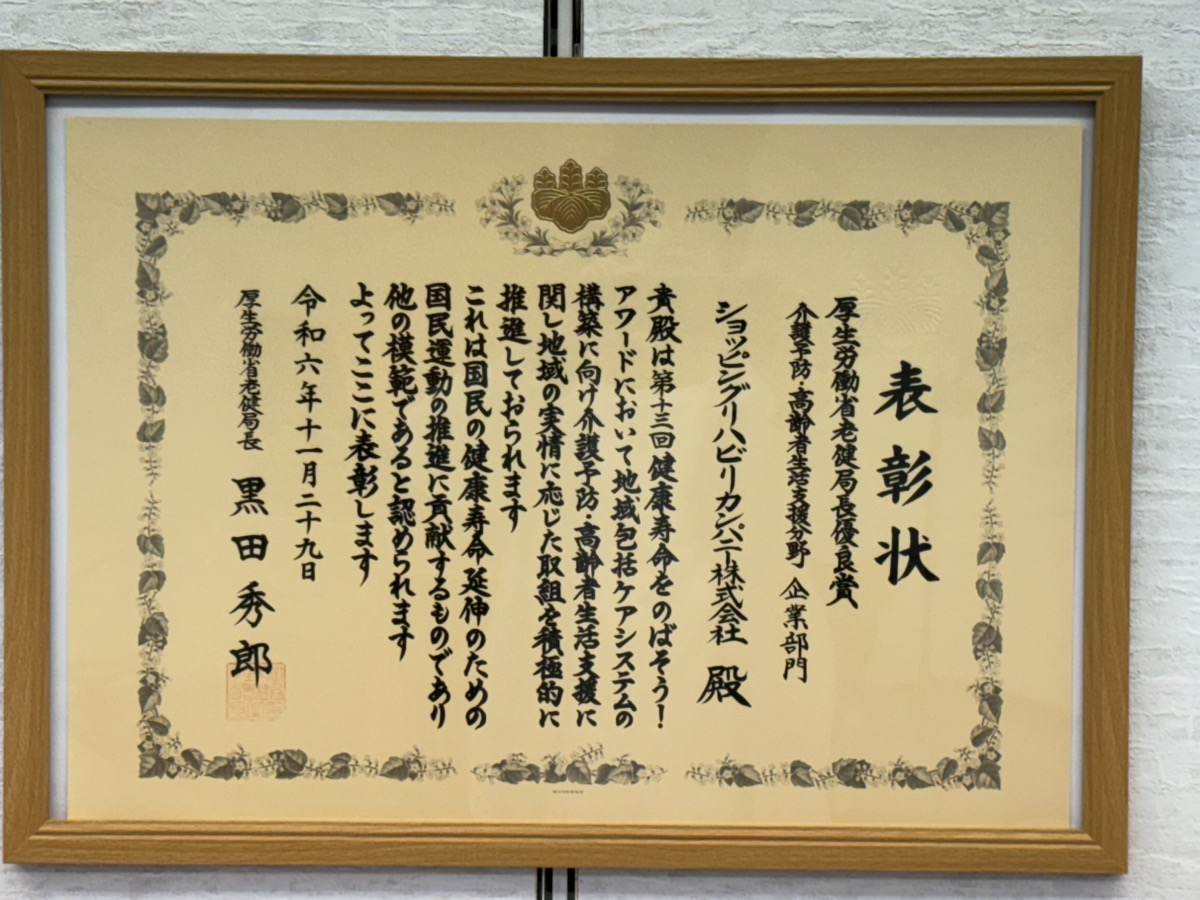 表彰状
厚生労働省老健局長優良賞
介護予防・高齢者生活支援分野 企業部門
ショッピングリハビリカンパニー株式会社 殿
貴殿は第十三回健康寿命をのばそう！
アワードにおいて地域包括ケアシステムの
構築に向け介護予防・高齢者生活支援に
関し地域の実情に応じた取組を積極的に
推進しておられます
これは国民の健康寿命延伸のための
国民運動の推進に貢献するものであり
他の模範であると認められます
よってここに表彰します
令和六年十一月二十九日
厚生労働省老健局長 黒田秀郎